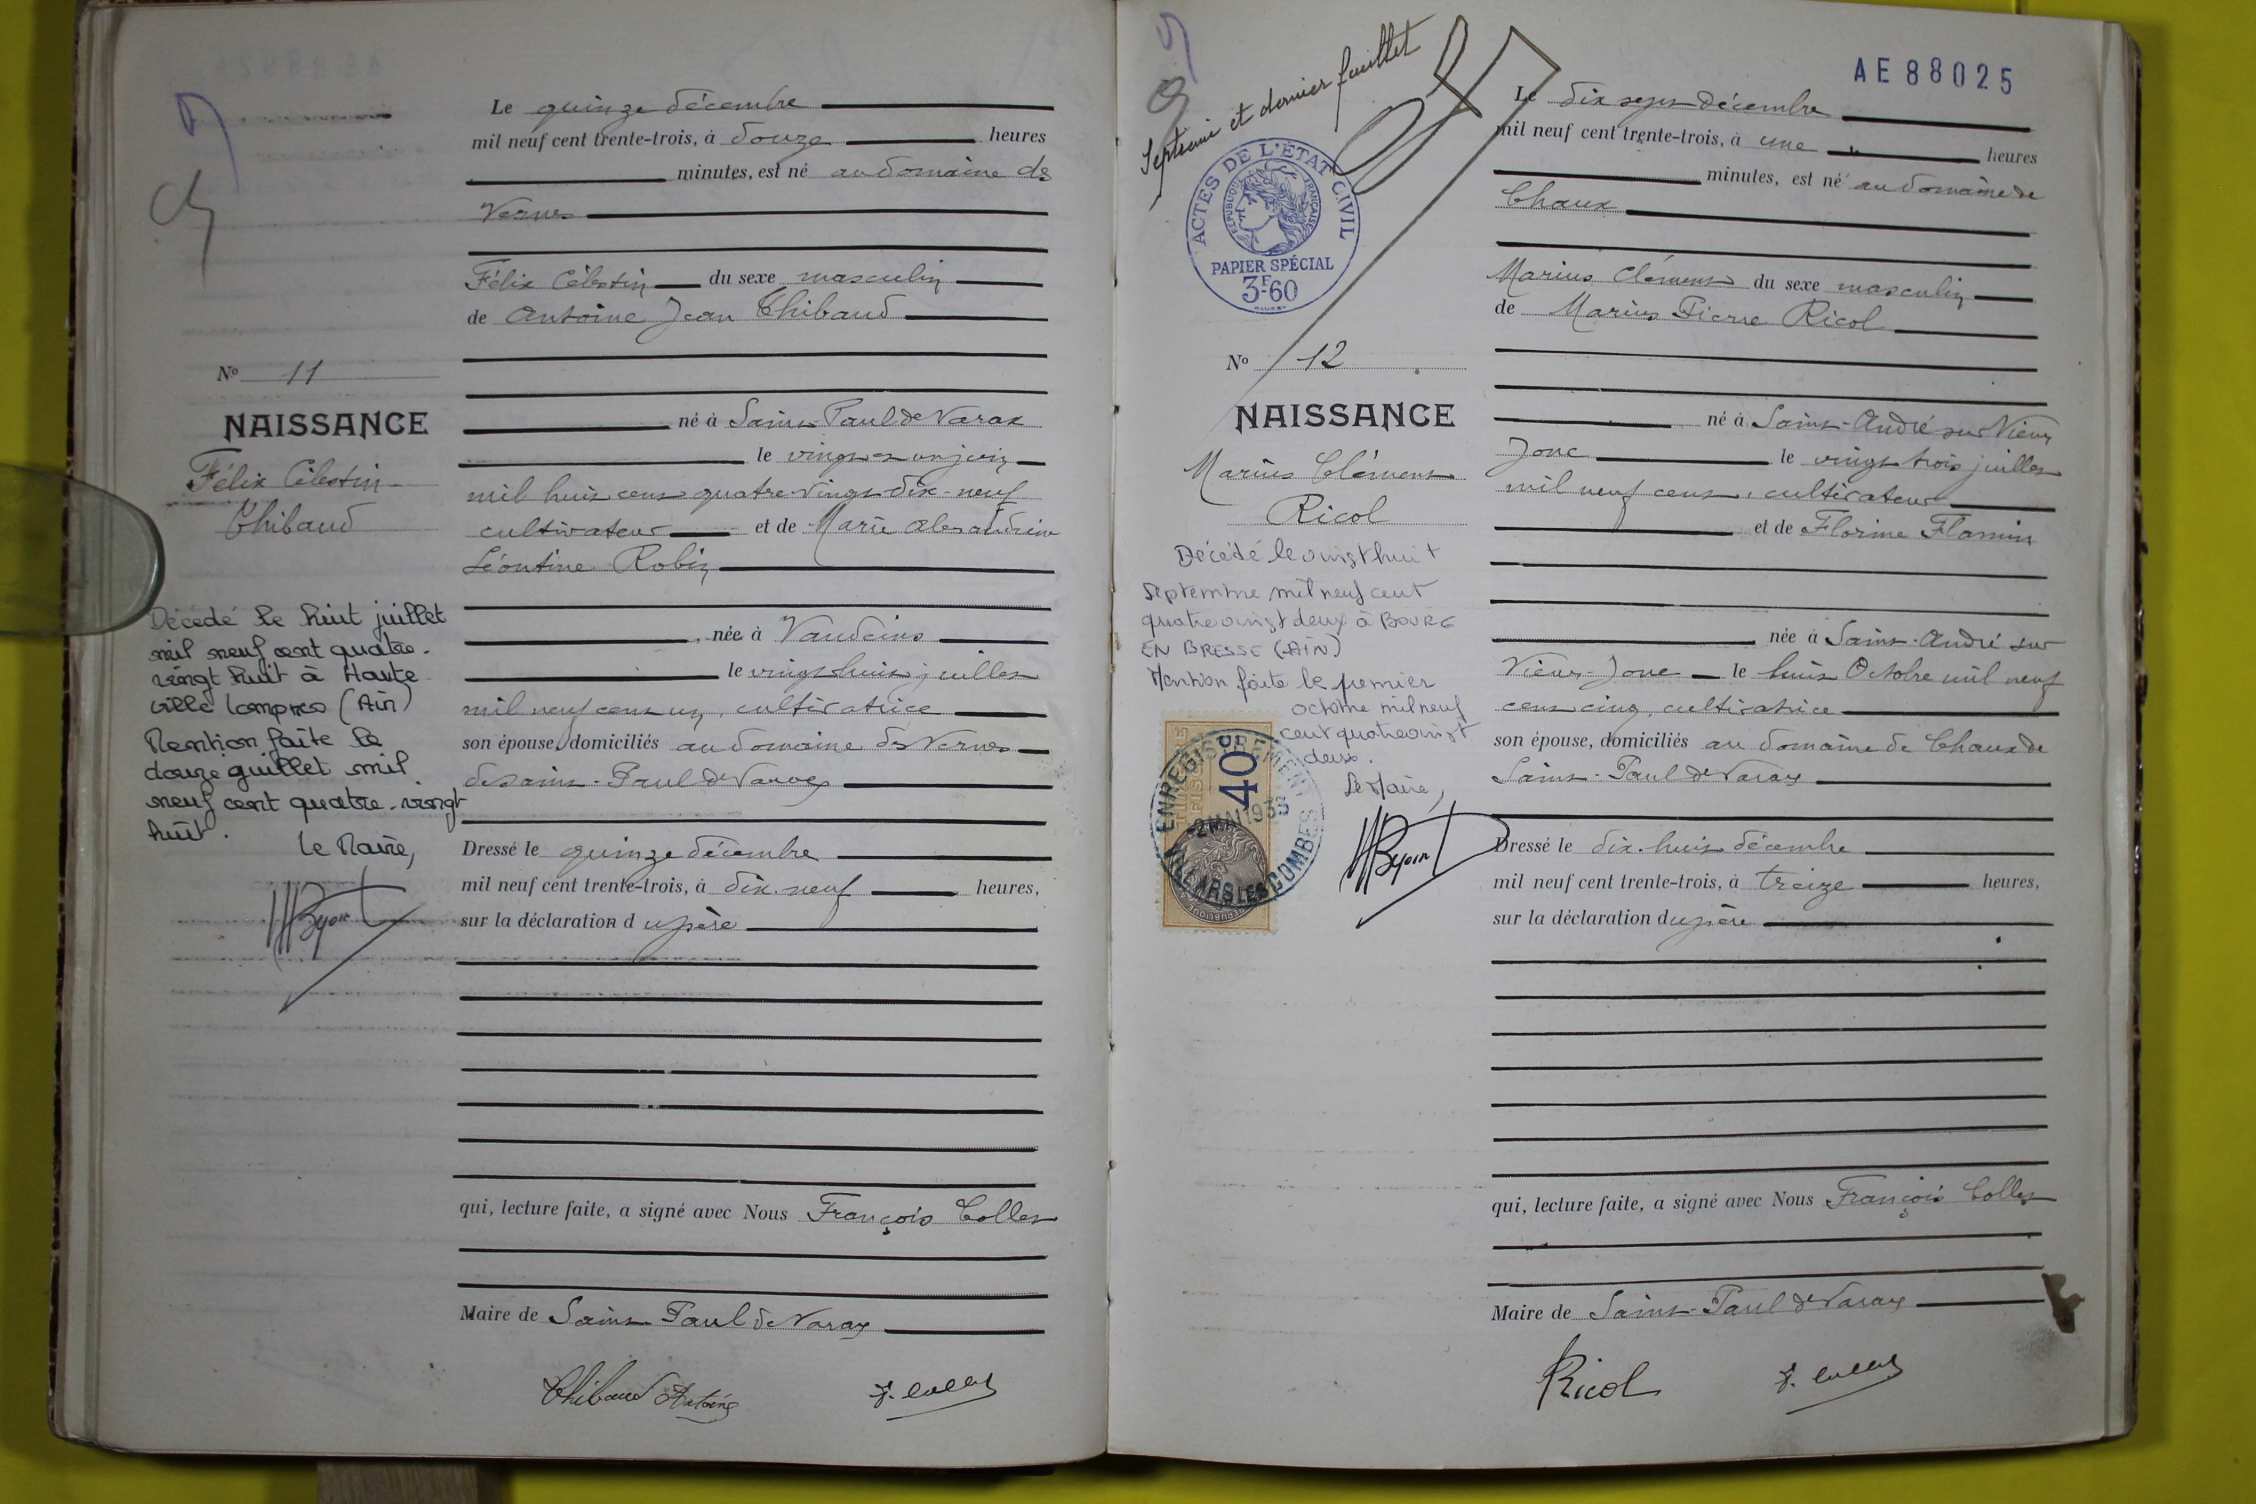 Le quinze décembre
mil neuf cent trente-trois, à douze heures
minutes, est né au domaine des
Vernes
Félix Célestin du sexe masculin
de Antoine Jean Thibaud
né à Saint-Paul de Varax
le vingt et un juin
mil huit cent quatre-vingt-dix-neuf
cultivateur et de Marie Alexandrine
Léontine Robin
née à Vandeins
le vingt huit juillet
mil neuf cent un, cultivatrice
son épouse, domiciliés au domaine des Vernes
de Saint-Paul de Varax
Dressé le quinze décembre
mil neuf cent trente-trois, à dix-neuf heures,
sur la déclaration du père
qui, lecture faite, a signé avec Nous François Collet
Maire de Saint Paul de Varax
Thibaud Antoine
F. Collet
No 11
NAISSANCE
Félix Célestin
Thibaud
Décédé le huit juillet
mil neuf cent quatre-
vingt huit à Haute
ville Lompnes (Ain)
Mention faite le
douze juillet mil
neuf cent quatre-vingt
huit.
Le Maire,
Septième et dernier feuillet
ACTES DE L'ÉTAT CIVIL
RÉPUBLIQUE FRANÇAISE
PAPIER SPÉCIAL
3F.60
No 12
NAISSANCE
Marius Clément
Ricol
Décédé le vingt huit
septembre mil neuf cent
quatre vingt deux à BOURG
EN BRESSE (AIN)
Mention faite le premier
octobre mil neuf
cent quatre vingt
deux.
Le Maire,
ENREGISTREMENT
40
VILLARS LES DOMBES
AE88025
Le dix sept décembre
mil neuf cent trente-trois, à une heures
minutes, est né au domaine de
Chaux
Marius Clément du sexe masculin
de Marius Pierre Ricol
né à Saint-André sur Vieux
Jonc le vingt trois juillet
mil neuf cent, cultivateur
et de Florine Flamin
née à Saint-André sur
Vieux-Jonc le huit Octobre mil neuf
cent cinq, cultivatrice
son épouse, domiciliés au domaine de Chaux de
Saint-Paul de Varax
Dressé le dix-huit décembre
mil neuf cent trente-trois, à treize heures,
sur la déclaration du père
qui, lecture faite, a signé avec Nous François Collet
Maire de Saint-Paul de Varax
Ricol
F. Collet